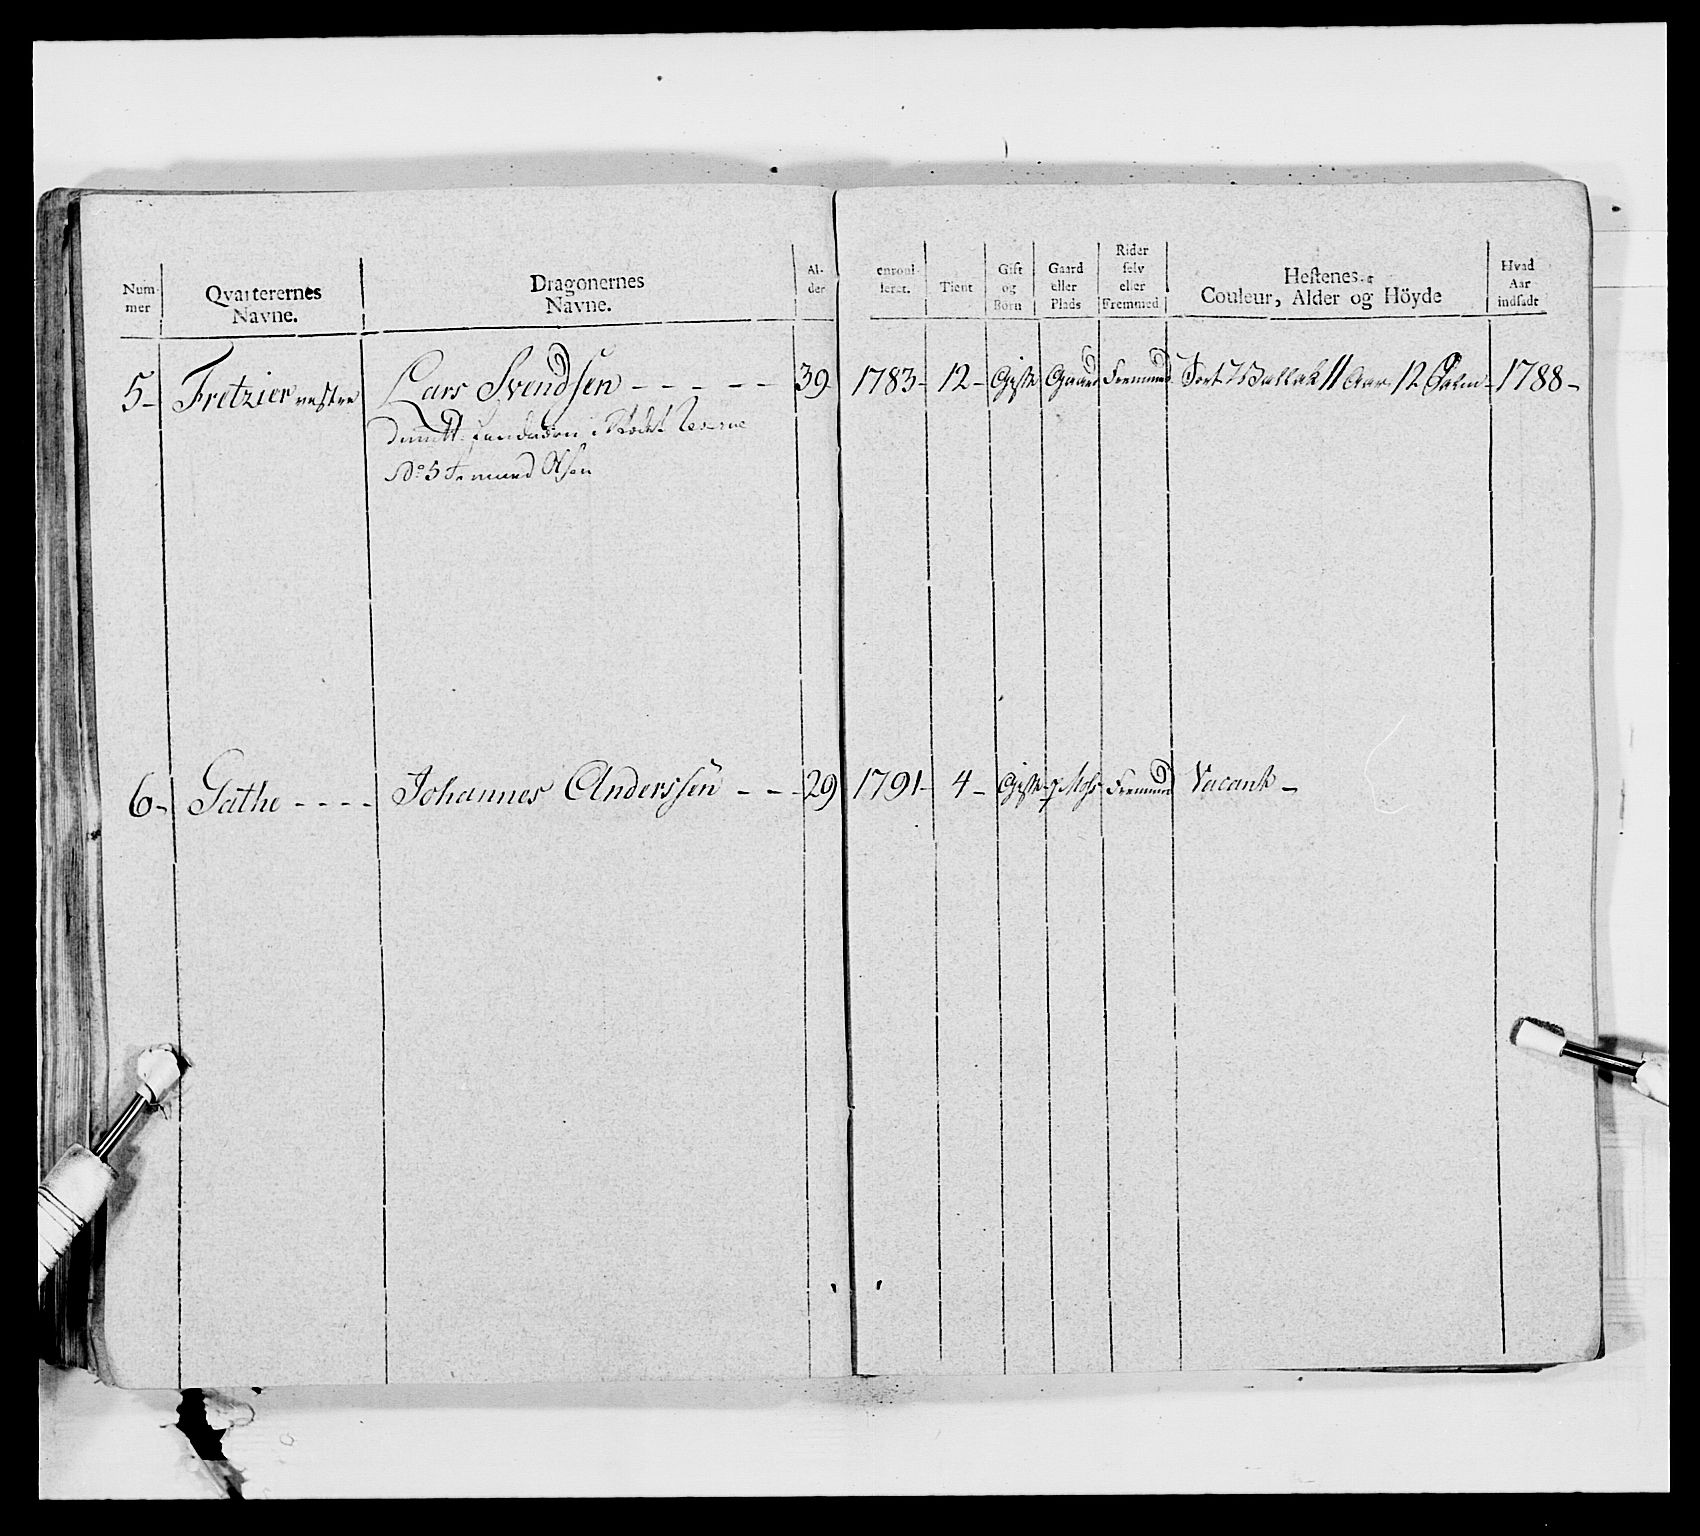 Num-
mer
Qvarterernes
Navne.
Dragonernes
Navne.
Al-
der
enroul-
leret.
Tient
Gift
og
Börn
Gaard
eller
Plads
Rider
selv
eller
Fremmed
Hestenes
Couleur, Alder og Höyde
Hvad
Aar
indsadt
5- Fretzier vestre Lars Svendsen - - - - - 39 1783- 12- Gift Gaard Fremmed Sort Vallak 11 Aar 12 Palm- 1788-
i Stedet
No 5 Olsen
6- Gathe - - - - Johannes Anderssen - - - 29 1791- 4- Gift Fremmed Vacant-